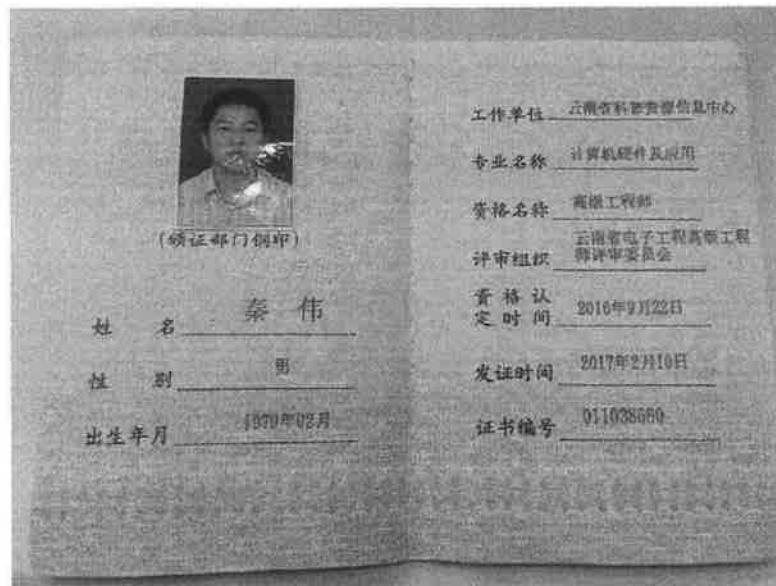 (颁证部门钢印)
姓 名 秦 伟
性 别 男
出生年月 1979年02月
工作单位 云南省科技资源信息中心
专业名称 计算机硬件及应用
资格名称 高级工程师
评审组织 云南省电子工程高级工程
师评审委员会
资格认
定时间 2016年9月22日
发证时间 2017年2月10日
证书编号